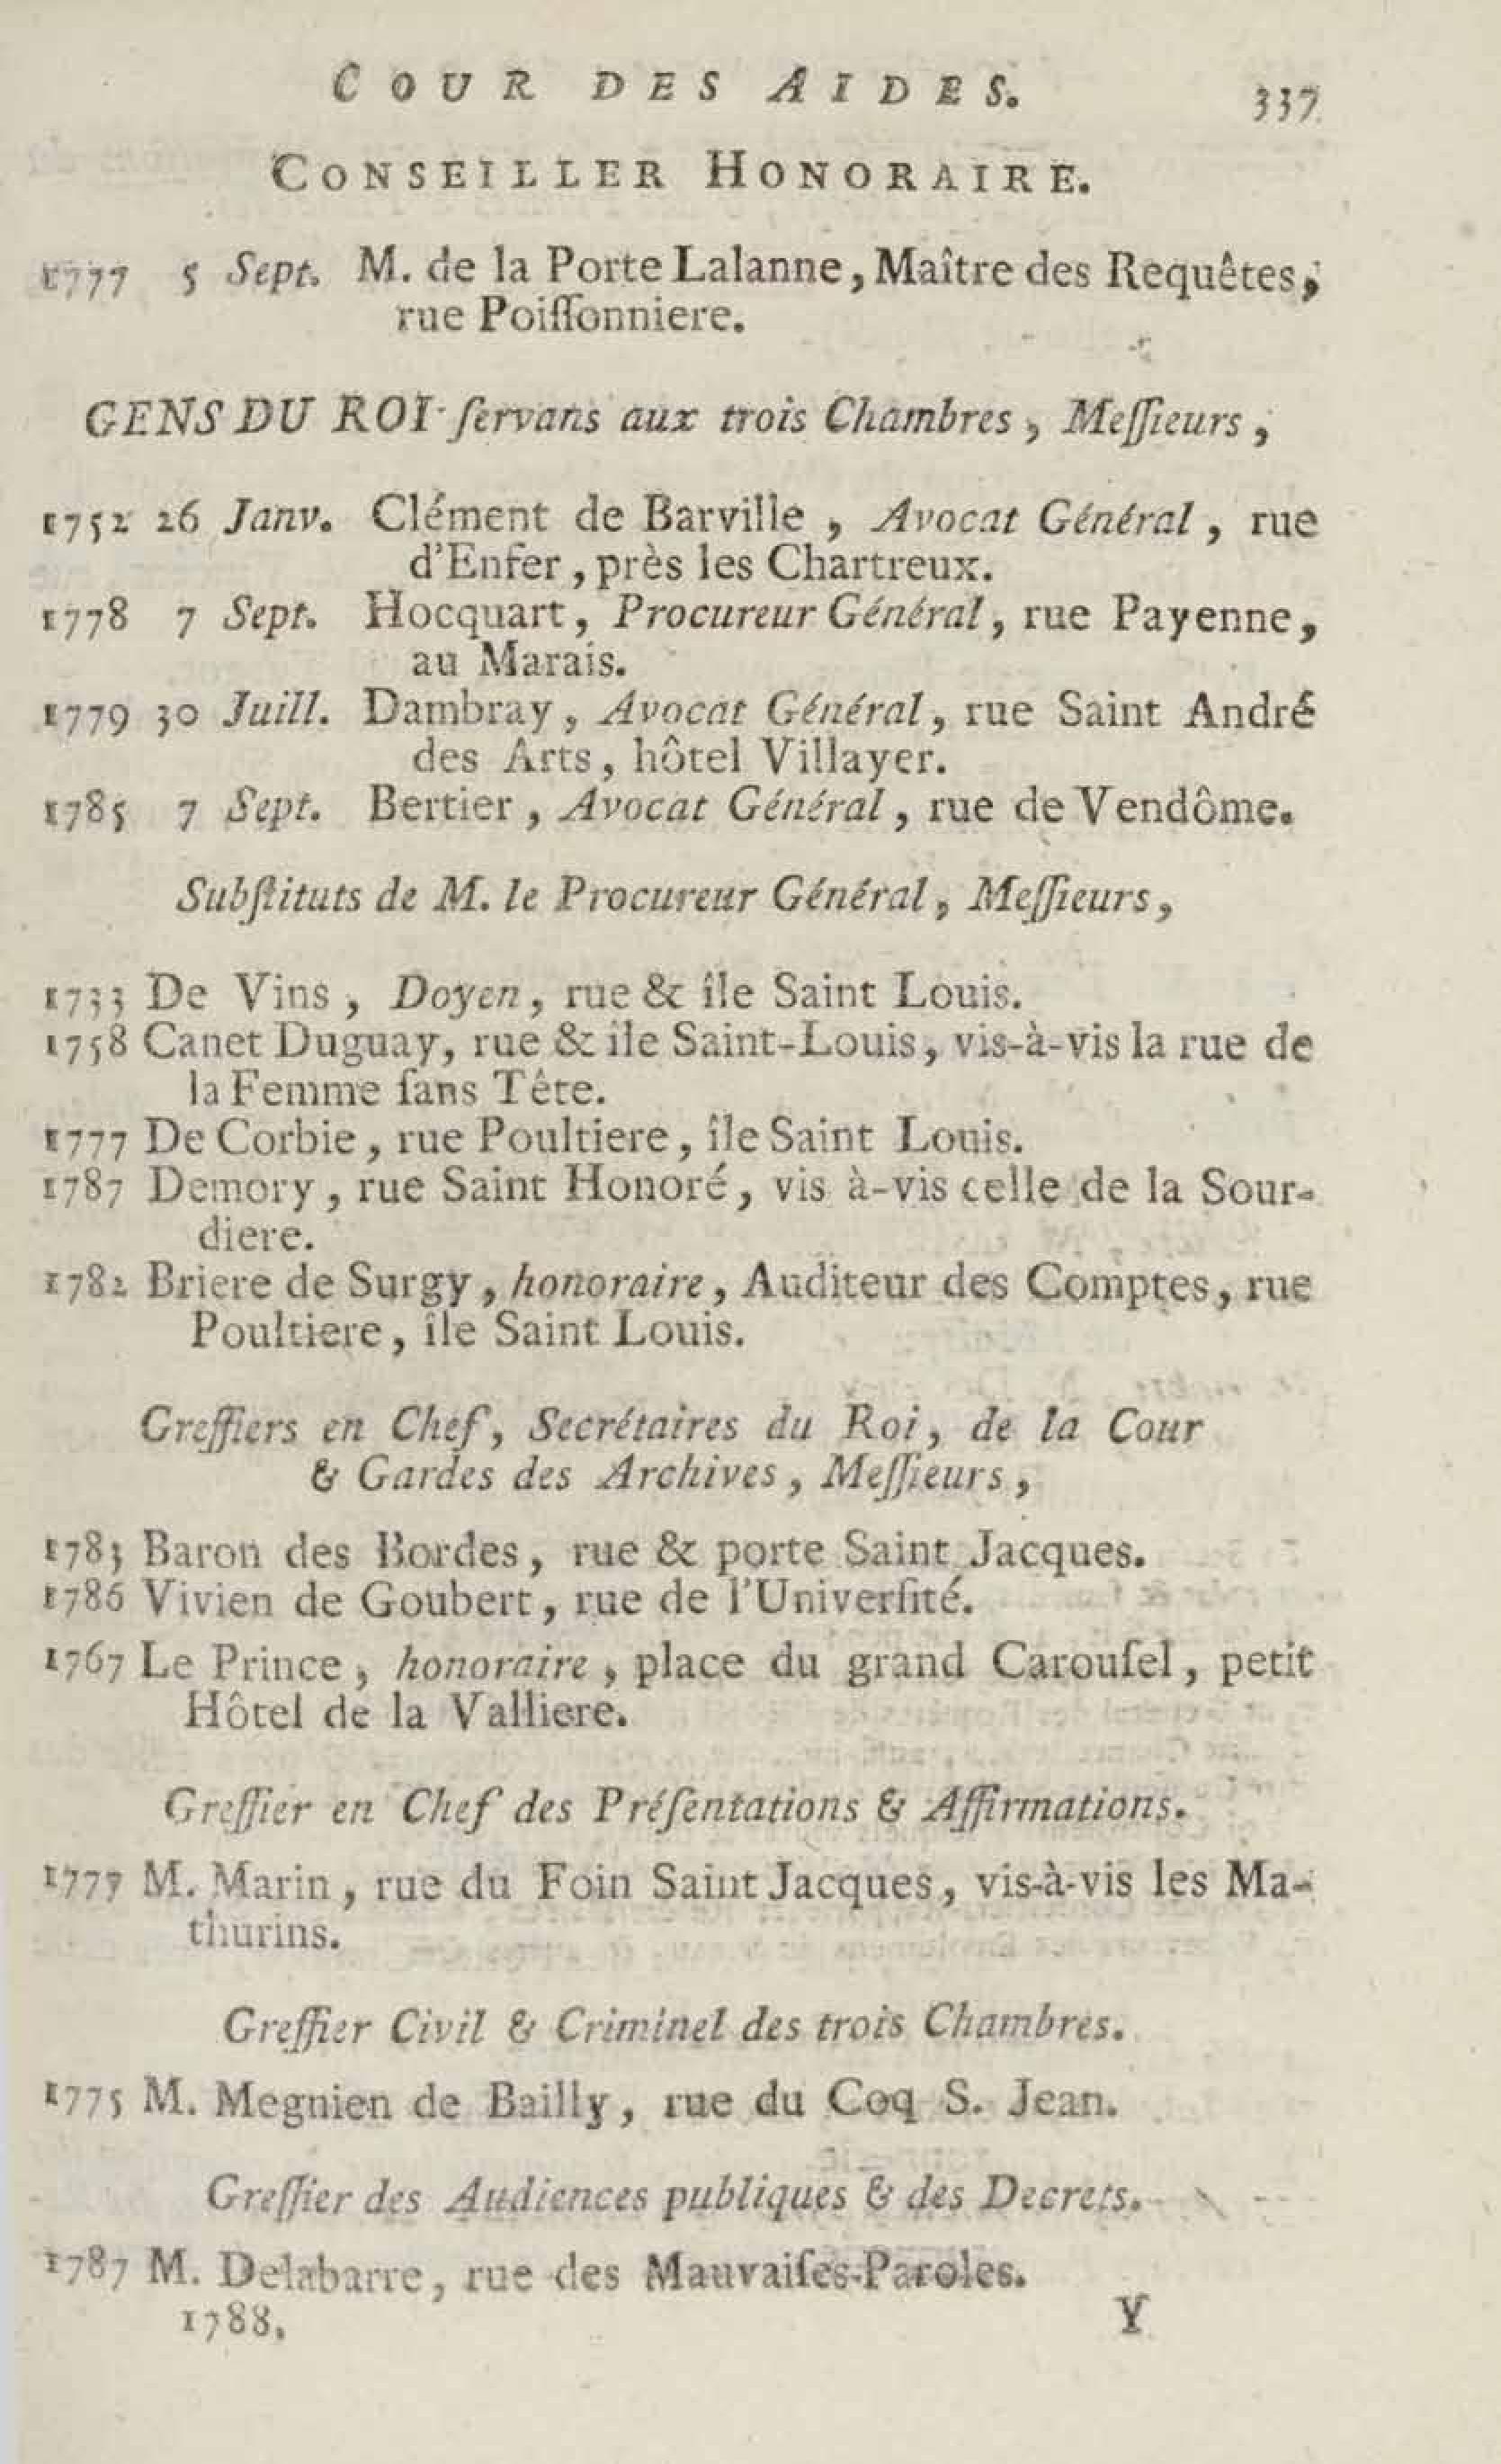 COUR DES AIDES. 337
CONSEILLER HONORAIRE.
1777 5 Sept. M. de la Porte Lalanne, Maître des Requêtes,
rue Poiſſonniere.
GENS DU ROI ſervans aux trois Chambres, Meſſieurs,
1752 26 Janv. Clément de Barville, Avocat Général, rue
d'Enfer, près les Chartreux.
1778 7 Sept. Hocquart, Procureur Général, rue Payenne,
au Marais.
1779 30 Juill. Dambray, Avocat Général, rue Saint André
des Arts, hôtel Villayer.
1785 7 Sept. Bertier, Avocat Général, rue de Vendôme.
Subſtituts de M. le Procureur Général, Meſſieurs,
1733 De Vins, Doyen, rue & île Saint Louis.
1758 Canet Duguay, rue & île Saint-Louis, vis-à-vis la rue de
la Femme ſans Tête.
1777 De Corbie, rue Poultiere, île Saint Louis.
1787 Demory, rue Saint Honoré, vis à-vis celle de la Sour-
diere.
1782 Briere de Surgy, honoraire, Auditeur des Comptes, rue
Poultiere, île Saint Louis.
Greffiers en Chef, Secrétaires du Roi, de la Cour
& Gardes des Archives, Meſſieurs,
1783 Baron des Bordes, rue & porte Saint Jacques.
1786 Vivien de Goubert, rue de l'Univerſité.
1767 Le Prince, honoraire, place du grand Carouſel, petit
Hôtel de la Valliere.
Greffier en Chef des Préſentations & Affirmations.
1777 M. Marin, rue du Foin Saint Jacques, vis-à-vis les Ma-
thurins.
Greffier Civil & Criminel des trois Chambres.
1775 M. Megnien de Bailly, rue du Coq S. Jean.
Greffier des Audiences publiques & des Decrets.
1787 M. Delabarre, rue des Mauvaiſes-Paroles.
1788. Y